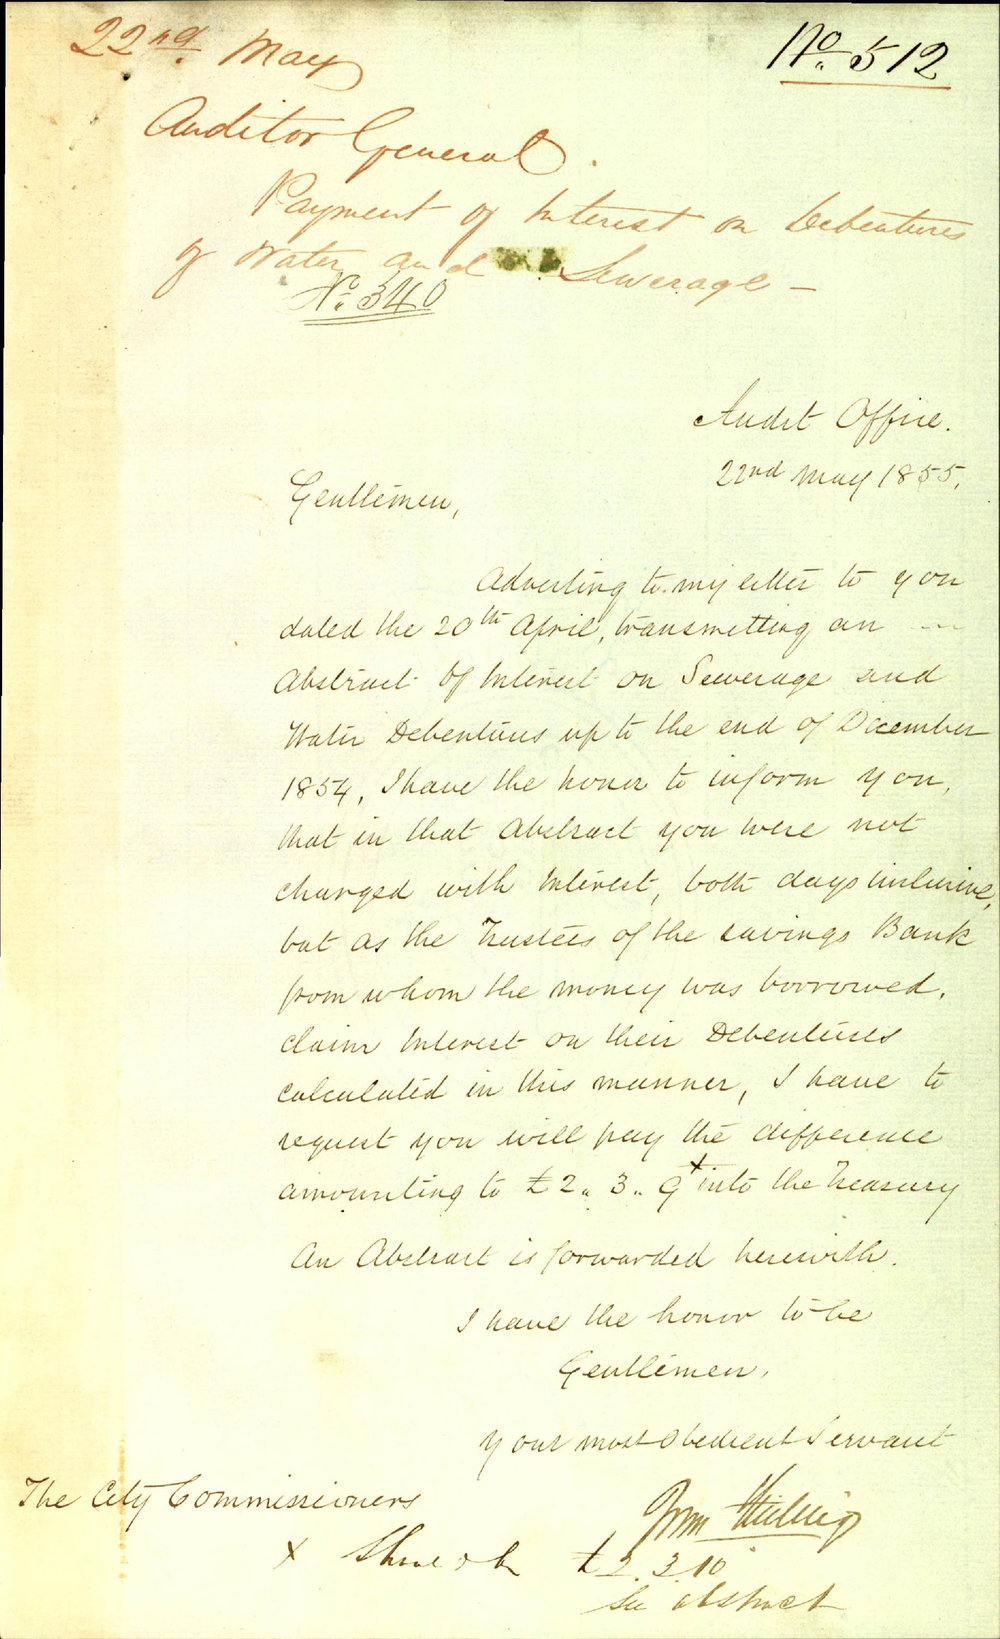 22nd. May
No. 512
Auditor General.
Payment of Interest on Debentures
of Water and Sewerage -
No. 340
Audit Office.
22nd May 1855.
Gentlemen,
Adverting to my letter to you
dated the 20th April, transmitting an
Abstract of Interest on Sewerage and
Water Debentures up to the end of December
1854, I have the honor to inform you,
that in that Abstract you were not
charged with Interest, both days inclusive,
but as the Trustees of the Savings Bank
from whom the money was borrowed,
claim Interest on their Debentures
calculated in this manner, I have to
request you will pay the difference
amounting to £2.. 3.. 9 x into the Treasury
An Abstract is forwarded herewith.
I have the honor to be
Gentlemen,
Your most obedient Servant
The City Commissioners
Wm
x Should be £2. 3. 10
See abstract